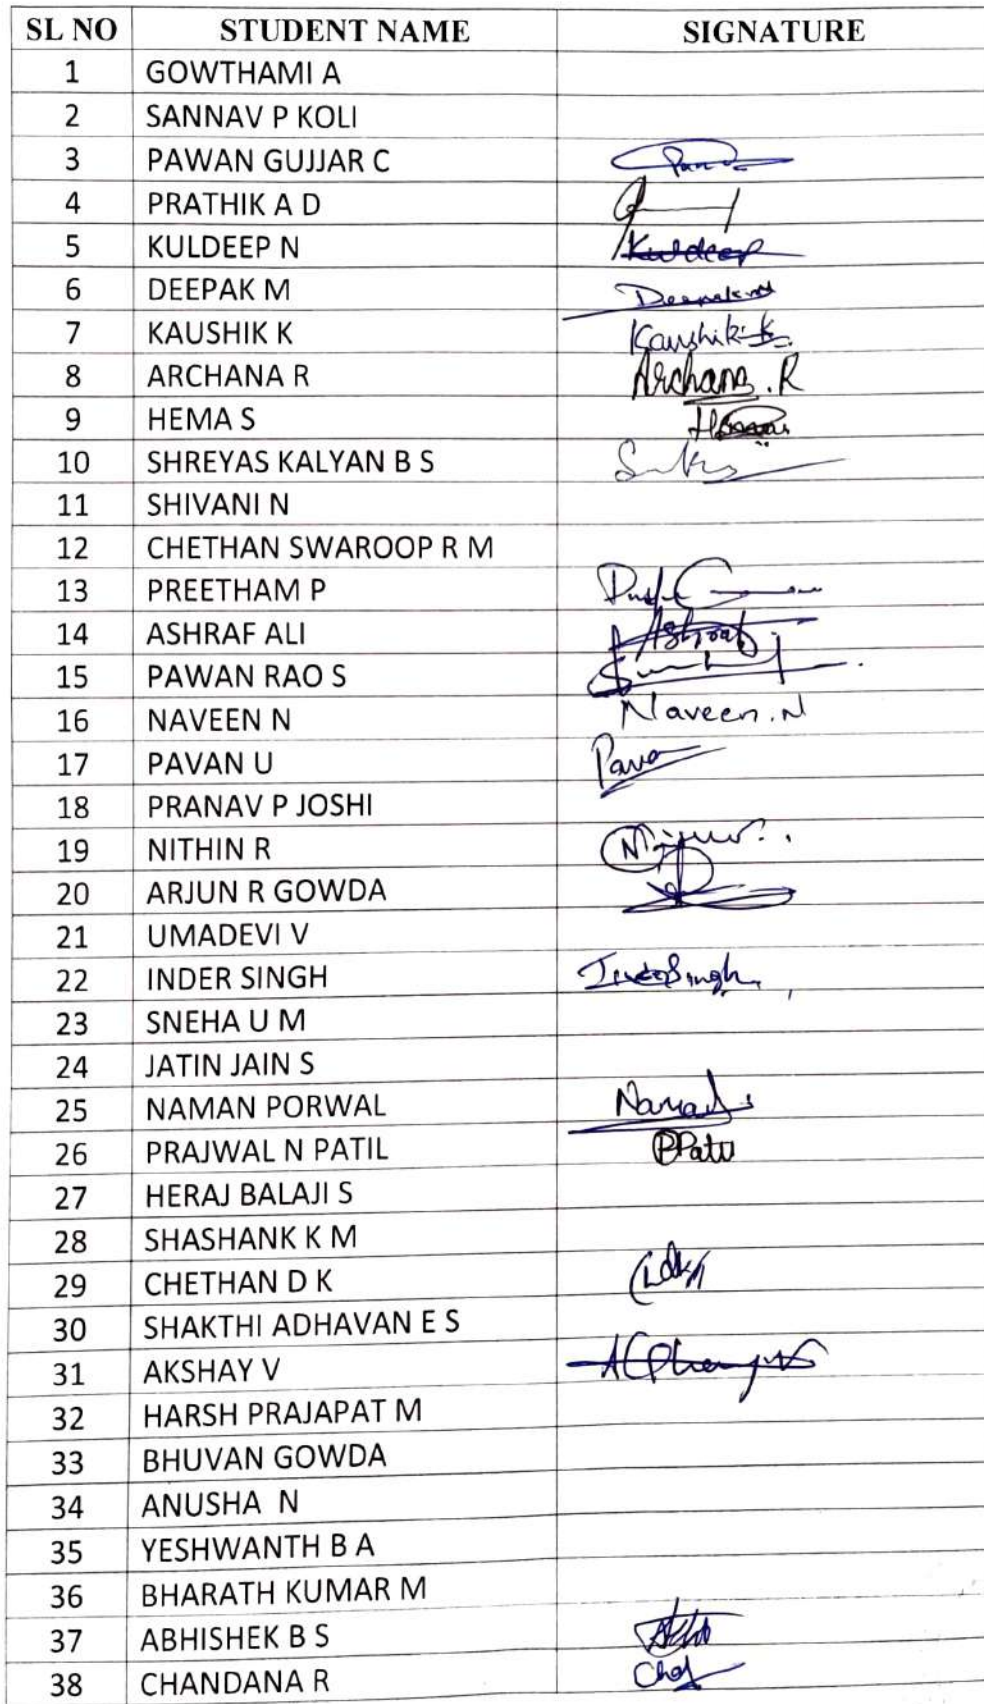 SL NO STUDENT NAME SIGNATURE
1 GOWTHAMI A
2 SANNAV P KOLI
3 PAWAN GUJJAR C
4 PRATHIK A D
5 KULDEEP N Kuldeep
6 DEEPAK M Deepak
7 KAUSHIK K Kaushik K.
8 ARCHANA R Archana . R
9 HEMA S
10 SHREYAS KALYAN B S
11 SHIVANI N
12 CHETHAN SWAROOP R M
13 PREETHAM P
14 ASHRAF ALI Ashraf
15 PAWAN RAO S
16 NAVEEN N Naveen . N
17 PAVAN U Pavan
18 PRANAV P JOSHI
19 NITHIN R
20 ARJUN R GOWDA
21 UMADEVI V
22 INDER SINGH Inder Singh
23 SNEHA U M
24 JATIN JAIN S
25 NAMAN PORWAL Naman
26 PRAJWAL N PATIL PPatil
27 HERAJ BALAJI S
28 SHASHANK K M
29 CHETHAN D K
30 SHAKTHI ADHAVAN E S
31 AKSHAY V
32 HARSH PRAJAPAT M
33 BHUVAN GOWDA
34 ANUSHA N
35 YESHWANTH B A
36 BHARATH KUMAR M
37 ABHISHEK B S
38 CHANDANA R